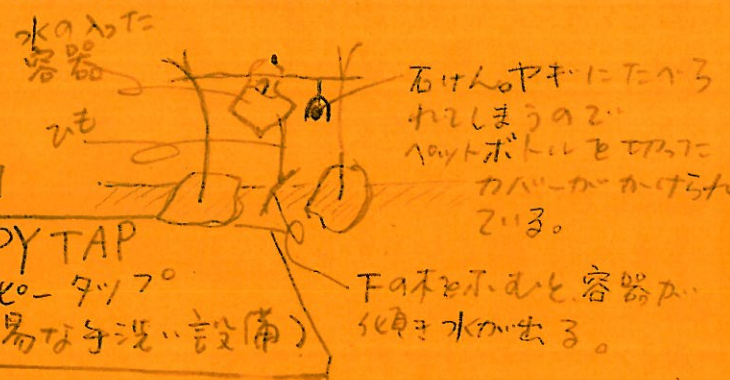 水の入った
容器
ひも
石けん。ヤギにたべら
れてしまうので
ペットボトルを切った
カバーがかけられ
ている。
PY TAP
ピータップ
易な手洗い設備)
下の木をふむと、容器が
傾き水が出る。